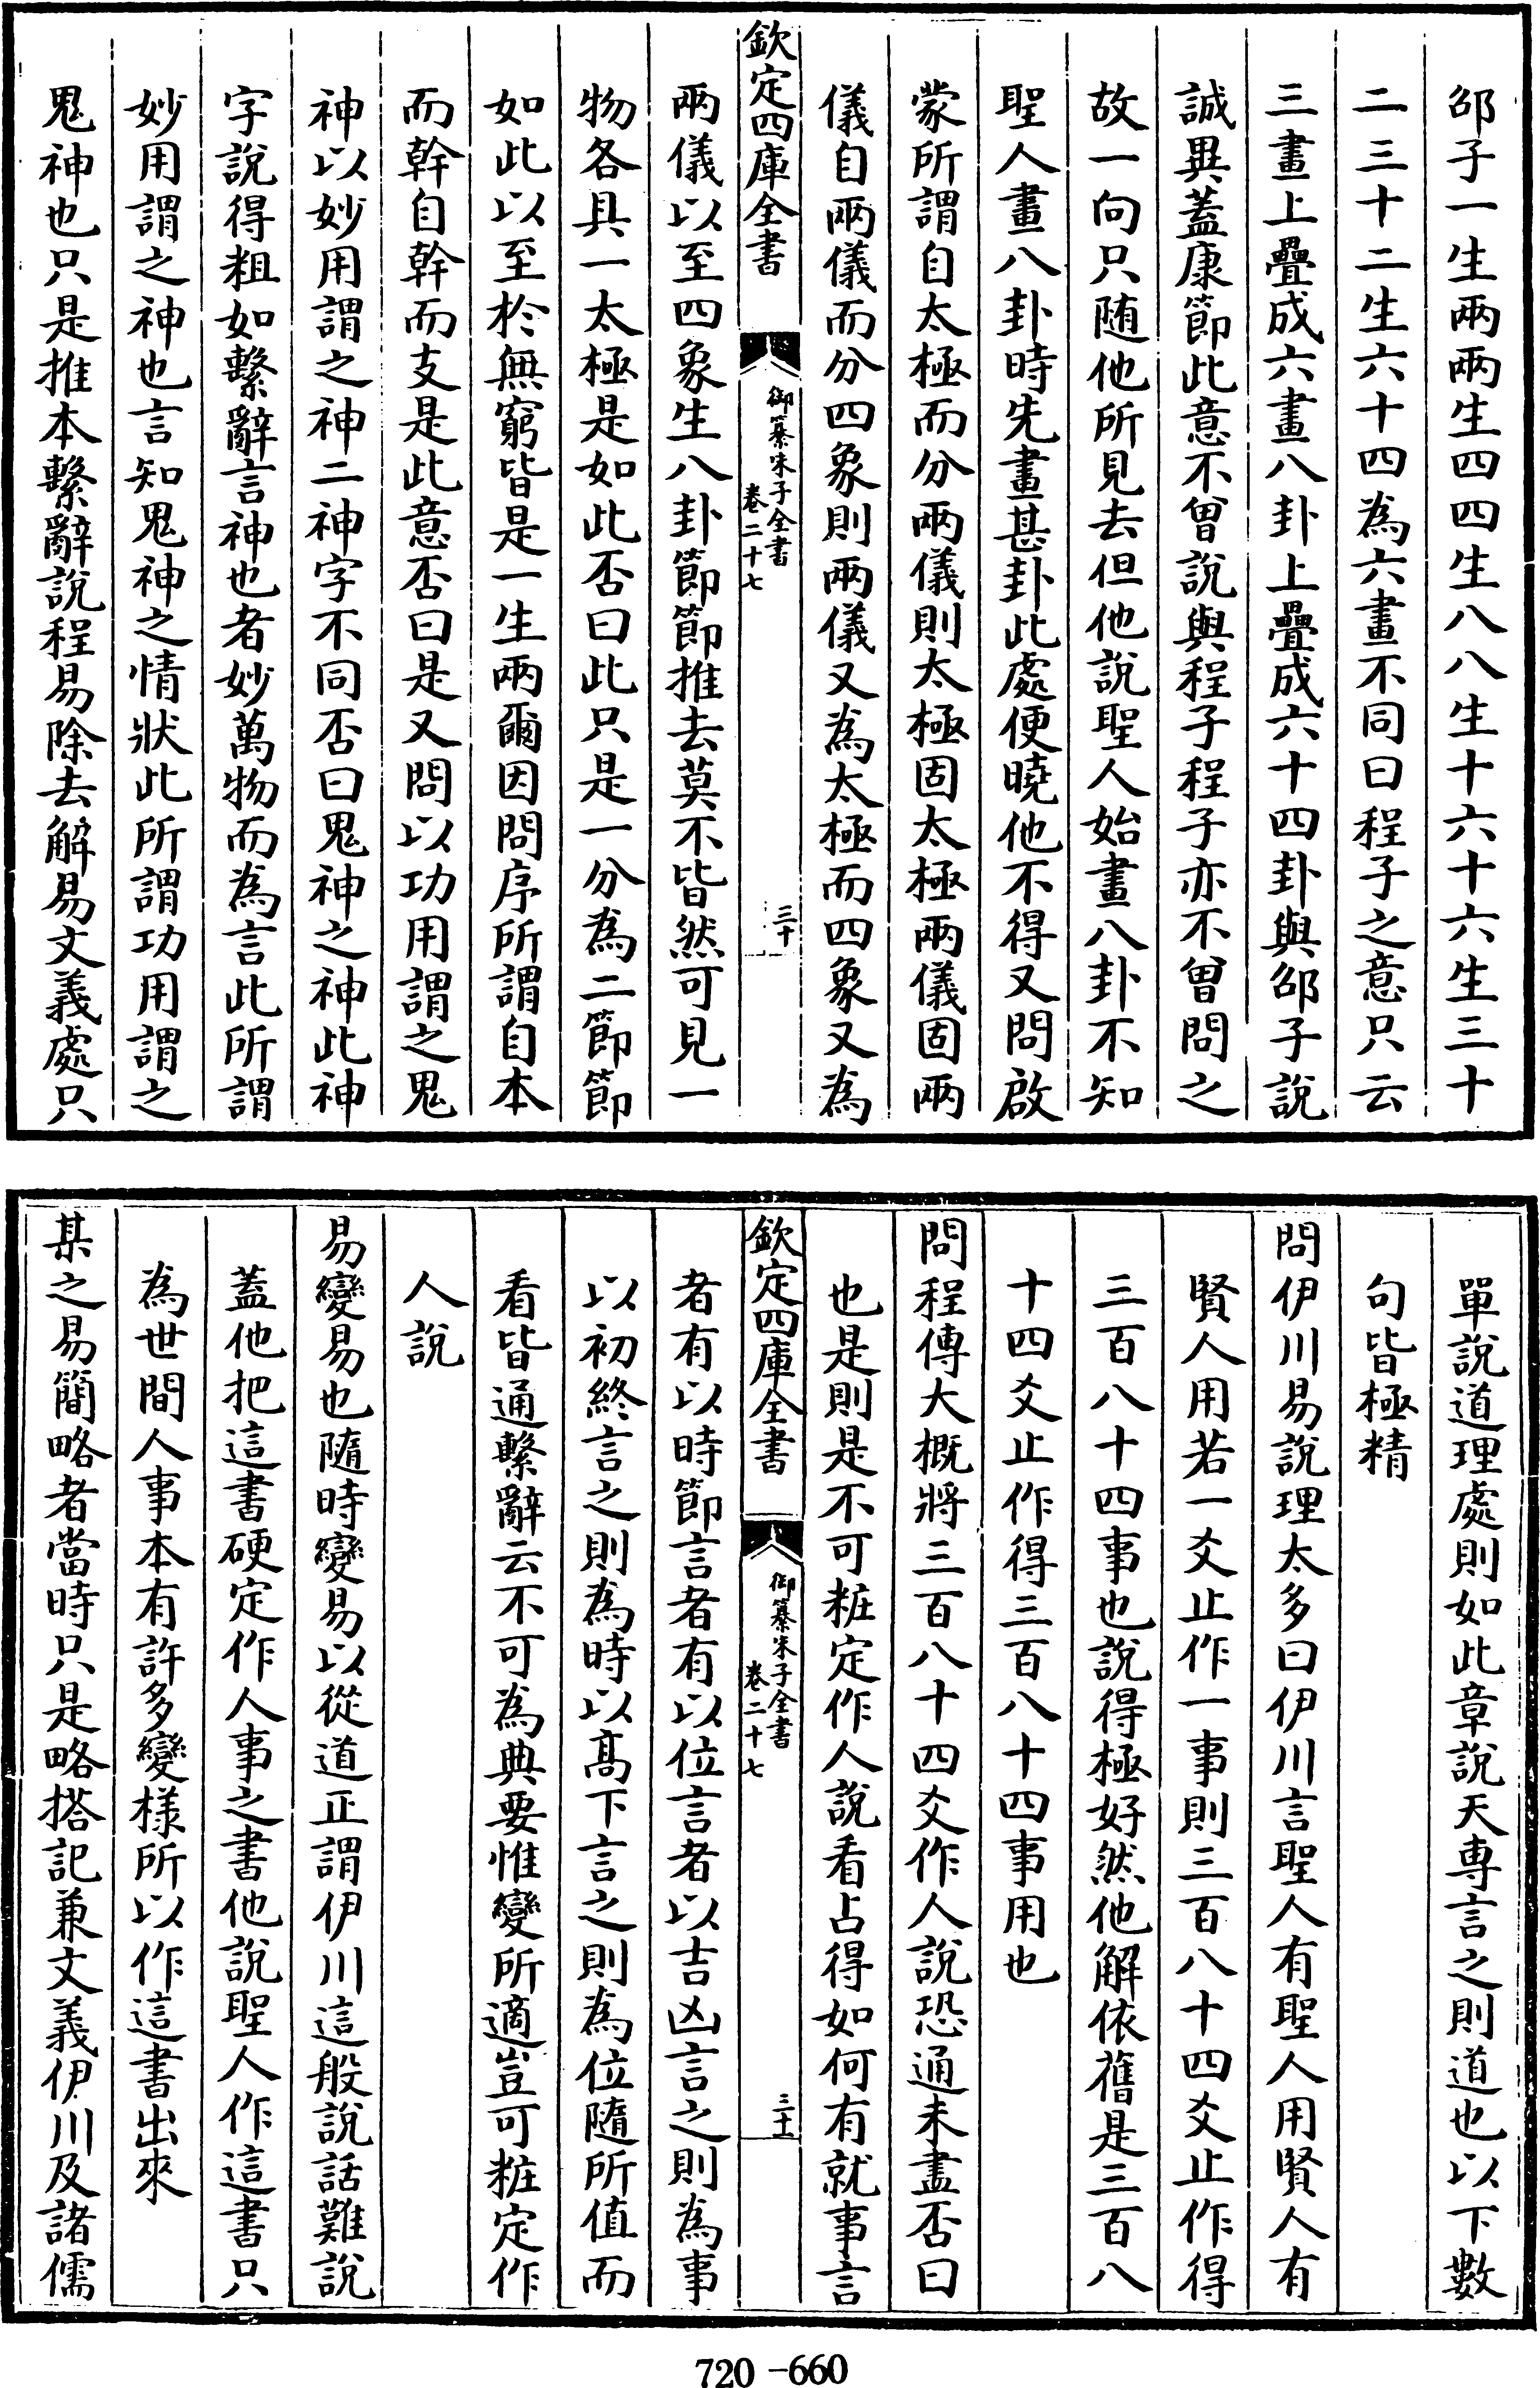 邵子一生兩兩生四四生八八生十六十六生三十
二三十二生六十四為六畫不同曰程子之意只云
三畫上疊成六畫八卦上疊成六十四卦與邵子說
誠異蓋康節此意不曾說與程子程子亦不曾問之
故一向只随他所見去但他說聖人始畫八卦不知
聖人畫八卦時先畫甚卦此處便曉他不得又問啟
蒙所謂自太極而分兩儀則太極固太極兩儀固兩
儀自兩儀而分四象則兩儀又為太極而四象又為
欽定四庫全書
御纂朱子全書
卷二十七
三十
兩儀以至四象生八卦節節推去莫不皆然可見一
物各具一太極是如此否曰此只是一分為二節節
如此以至於無窮皆是一生兩爾因問序所謂自本
而幹自幹而支是此意否曰是又問以功用謂之鬼
神以妙用謂之神二神字不同否曰鬼神之神此神
字說得粗如繫辭言神也者妙萬物而為言此所謂
妙用謂之神也言知鬼神之情狀此所謂功用謂之
鬼神也只是推本繫辭說程易除去解易文義處只
單說道理處則如此章說天專言之則道也以下數
句皆極精
問伊川易說理太多曰伊川言聖人有聖人用賢人有
賢人用若一爻止作一事則三百八十四爻止作得
三百八十四事也說得極好然他解依舊是三百八
十四爻止作得三百八十四事用也
問程傳大概將三百八十四爻作人說恐通未盡否曰
也是則是不可粧定作人說看占得如何有就事言
欽定四庫全書
御纂朱子全書
卷二十七
三十一
者有以時節言者有以位言者以吉凶言之則為事
以初終言之則為時以高下言之則為位隨所值而
看皆通繫辭云不可為典要惟變所適豈可粧定作
人說
易變易也隨時變易以從道正謂伊川這般說話難說
蓋他把這書硬定作人事之書他說聖人作這書只
為世間人事本有許多變樣所以作這書出來
某之易簡略者當時只是略搭記兼文義伊川及諸儒
720-660